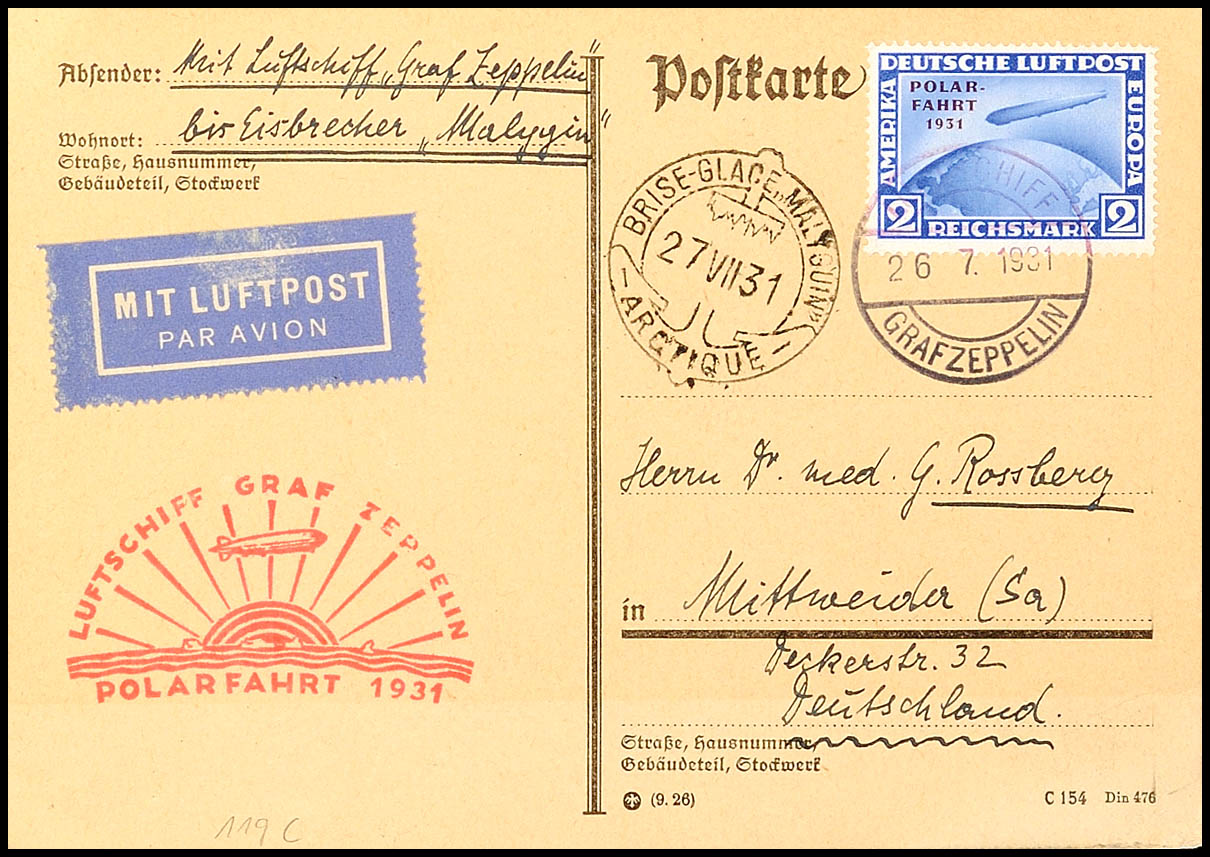 Absender: Mit Luftschiff „Graf Zeppelin"
Wohnort: bis Eisbrecher „Malygin"
Straße, Hausnummer,
Gebäudeteil, Stockwerk
MIT LUFTPOST
PAR AVION
LUFTSCHIFF GRAF ZEPPELIN
POLARFAHRT 1931
119 C
Postkarte
DEUTSCHE LUFTPOST
AMERIKA
EUROPA
POLAR-
FAHRT
1931
2 REICHSMARK 2
BRISE-GLACE „MALYGUIN"
27 VII 31
— ARCTIQUE —
LUFTSCHIFF
26 7. 1931
GRAF ZEPPELIN
Herrn Dr. med. G. Rossberg
in Mittweida (Sa)
Deckerstr. 32
Deutschland.
Straße, Hausnummer,
Gebäudeteil, Stockwerk
(9. 26)
C 154 Din 476